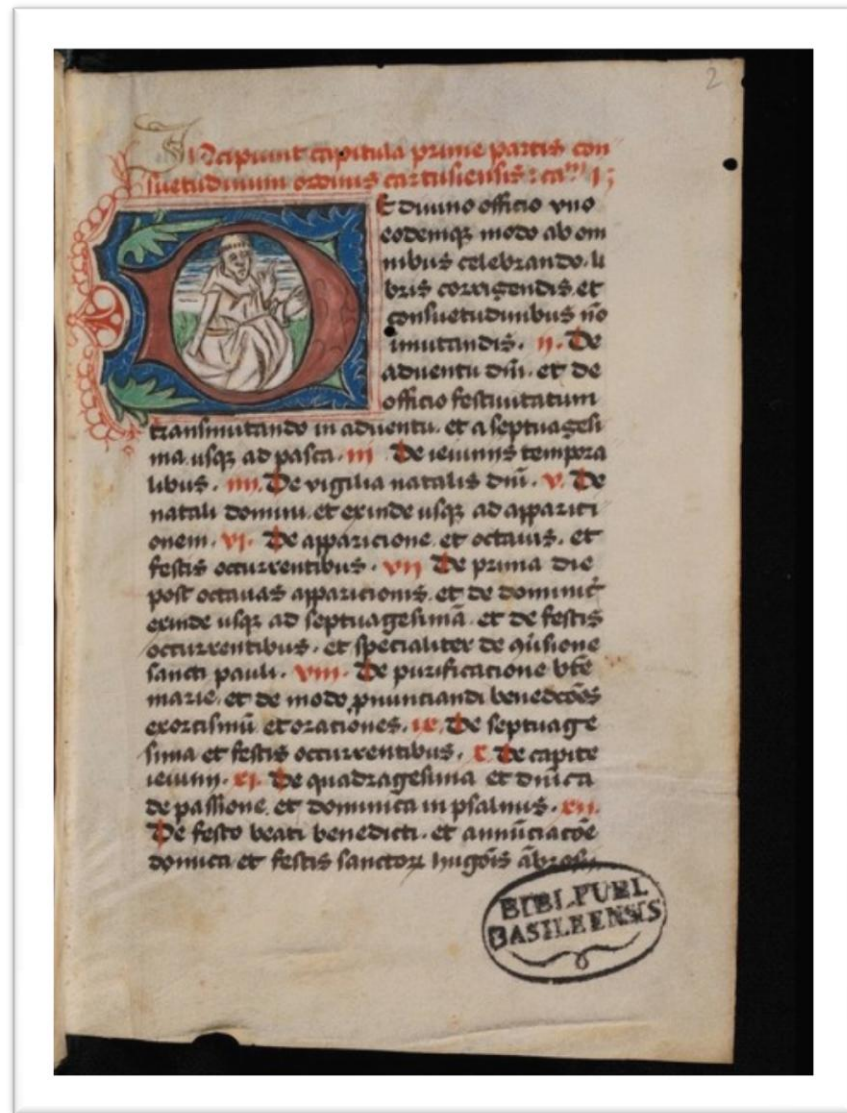 2
Incipiunt capitula prime partis con
suetudinum ordinis cartusiensis : cam 1;
DE diuino officio vno
eodemqz modo ab om
nibus celebrando. li
bris corrigendis. et
consuetudinibus no
imutandis. ii. De
aduentu dni. et de
officio festiuitatum
transmutando in aduentu. et a septuagesi
ma usqz ad pasca. iii De ieiuniis tempora
libus. iiii. De vigilia natalis dni. v. De
natali domini. et exinde usqz ad appariti
onem. vi. De apparicione et octauis. et
festis occurrentibus. vii De prima die
post octauas apparicionis. et de dominic
exinde usqz ad septuagesimā. et de festis
occurrentibus. et specialiter de 9uersione
sancti pauli. viii. De purificacione bte
marie. et de modo pnunciandi benedcoēs
exorcismū et orationes. ix. De septuage
sima et festis occurrentibus. x. De capite
ieiunii. xi. De quadragesima et dnica
de passione. et dominica in psalmis. xii.
De festo beati benedicti. et annūciacōe
domica et festis sanctorꝝ hugōis ābrosii
BIBL. PUBL
BASILEENSIS